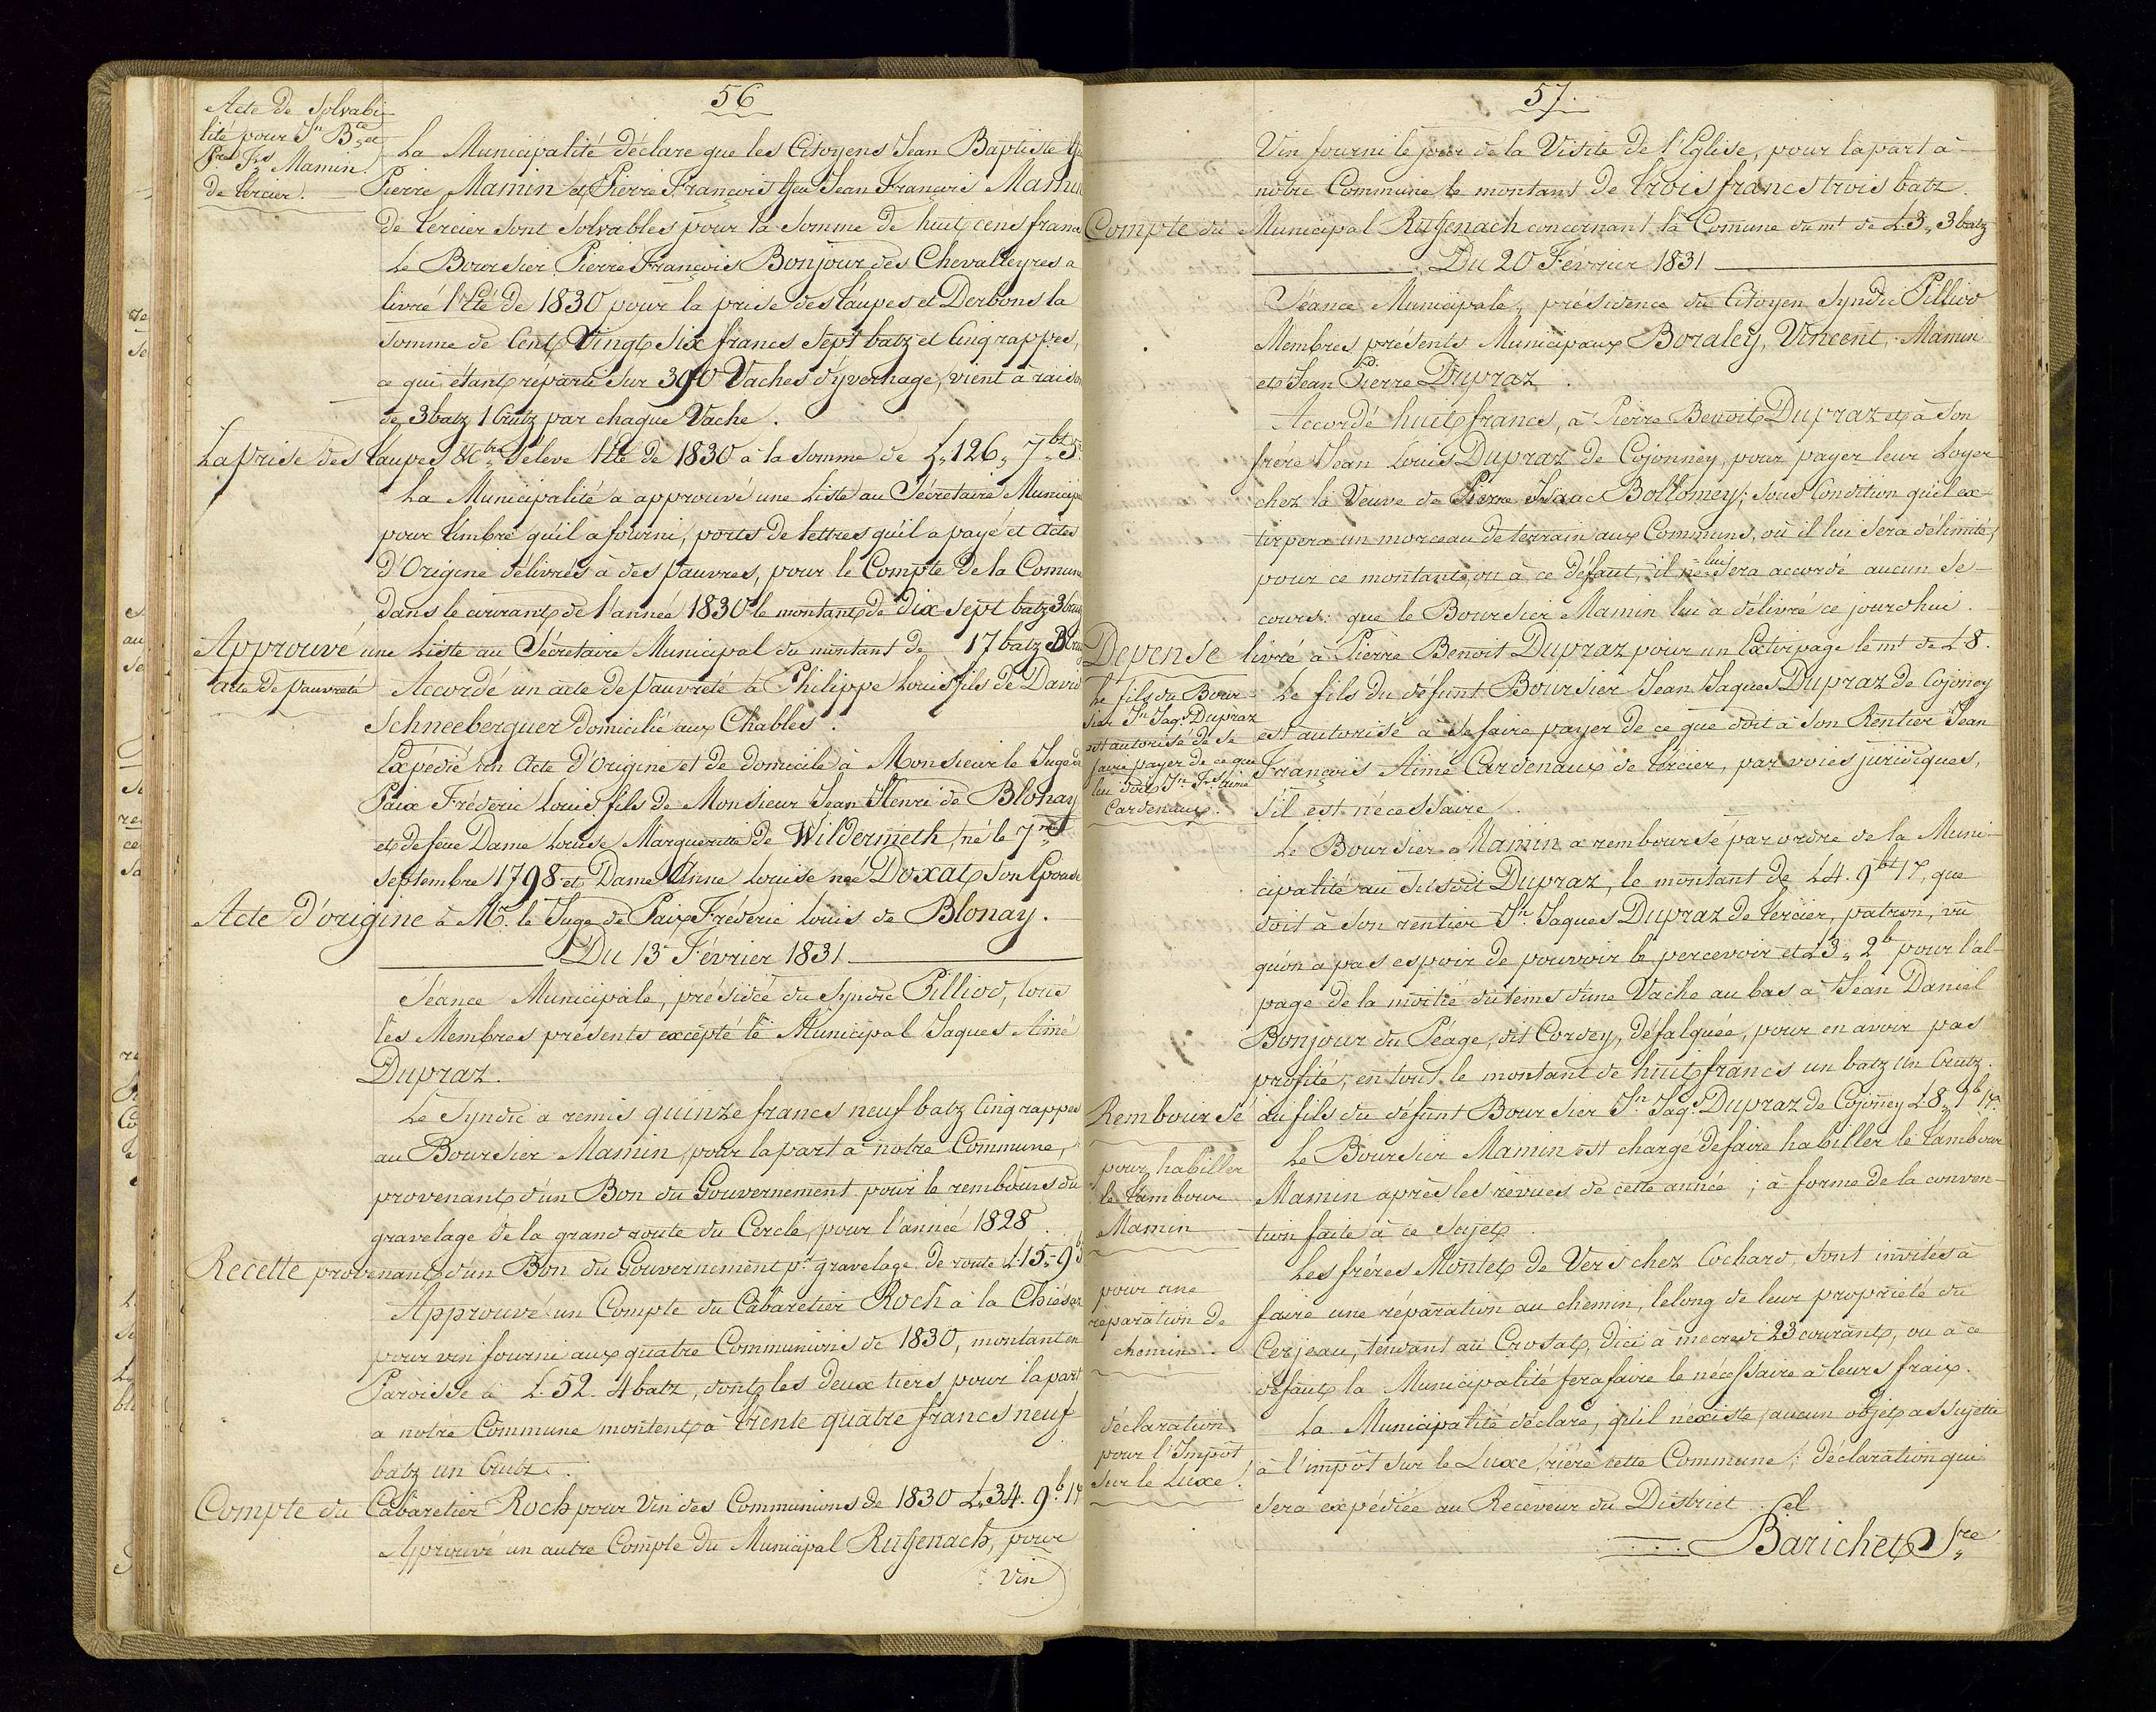 56
Acte de Solvabi-
lité pour Jn Bte et
Pre Fs Mamin
de tercier.
La Municipalité déclare que les Citoyens Jean Baptiste feu
Pierre Mamin et Pierre François feu Jean François Mamin
de tercier sont solvables pour la somme de huit cens francs
Le Boursier Pierre François Bonjour des Chevalleyres a
livré l'Eté de 1830 pour la prise des taupes et Derbons la
somme de Cent Vingt six francs sept batz et Cinq rappes,
ce qui étant réparti sur 390 Vaches d'yvernage, vient à raison
de 3 batz 1 Crutz par chaque Vache.
La prise des taupes &c s'éleve l'Eté de 1830 à la somme de L. 126, 7 bz 5.
La Municipalité a approuvé une Liste au Sécretaire Municipal
pour timbre qu'il a fourni, ports de lettres qu'il a payé et actes
d'Origine délivrés à des pauvres, pour le Compte de la Comune
dans le courant de l'année 1830 le montant de dix-sept batz 3 Crutz
Approuvé une Liste au Sécretaire Municipal du montant de 17 batz 3 Cruz
acte de pauvreté
Accordé un acte de pauvreté à Philippe Louis fils de David
Schneeberguer domicilié aux Chables.
Expédié un Acte d'Origine et de domicile à Monsieur le Juge de
Paix Fréderic Louis fils de Monsieur Jean Henri de Blonay
et de feue Dame Louise Marguerite de Wildermeth, né le 7
septembre 1798 et Dame Anne Louise née Doxat son Epouse
Acte d'origine à Mr. le Juge de Paix Fréderic Louis de Blonay.
Du 13 Février 1831
Séance Municipale, présidée du Syndic Pilliod, tous
les Membres présents excepté le Municipal Jaques Aimé
Dupraz.
Le Syndic a remis quinze francs neuf batz Cinq rappes
au Boursier Mamin, pour la part à notre Commune,
provenant d'un Bon du Gouvernement pour le rembours du
gravelage de la grand route du Cercle, pour l'année 1828
Recette provenant d'un Bon du Gouvernement pr gravelage de route L 15. 9 b 5
Approuvé un Compte du Cabaretier Roch à la Chiésaz
pour vin fourni aux quatre Communions de 1830, montant en
Paroisse à L. 52. 4 batz, dont les deux tiers pour la part
à notre Commune montent à trente quatre francs neuf
batz un Crutz.
Compte du Cabaretier Roch pour Vin des Communions de 1830 L. 34. 9 b. 1
Approuvé un autre Compte du Municipal Rugenach, pour
Vin
57.
Vin fourni le jour de la Visite de l'Eglise, pour la part à
notre Commune le montant de trois francs trois batz.
Compte du Municipal Rugenach concernant la Comune du mt de L. 3, 3 batz
Du 20 Février 1831
Séance Municipale, présidence du Citoyen Syndic Pilliod
Membres présents Municipaux Boraley, Vincent, Mamin
et Jean Pierre Dupraz.
Accordé huit francs, à Pierre Benoit Dupraz et à son
frère Jean Louis Dupraz de Cojonney, pour payer leur Loyer
chez la Veuve de Pierre Isaac Bollomey; sous Condition qu'il ex-
tirpera un morceau de terrain aux Communs, où il lui sera délimité,
pour ce montant, ou à ce défaut, il ne lui sera accordé aucun se-
cours: que le Boursier Mamin lui a délivré ce jourd'hui.
Depense livré à Pierre Benoit Dupraz pour un Extirpage le mt de L 8.
Le fils du Bour-
sier Jn Jaqs Dupraz
est autorisé de se
faire payer de ce que
lui doit Jn Fs Aimé
Cardenaux.
Le fils du défunt Boursier Jean Jaques Dupraz de Cojoney
est autorisé à se faire payer de ce que doit à son Rentier Jean
François Aimé Cardenaux de tercier, par voies juridiques,
s'il est nécessaire.
Le Boursier Mamin a remboursé par ordre de la Muni-
cipalité au susdit Dupraz, le montant de L 4. 9 bz 17, que
doit à son rentier Jn Jaques Dupraz de tercier, patron, vu
qu'on a pas espoir de pouvoir le percevoir et L 3, 2 b pour l'al-
page de la moitié du tems d'une Vache au bas à Jean Daniel
Bonjour du Péage, dit Cordey, défalquée, pour en avoir pas
profité, en tout le montant de huit francs un batz un Crutz.
Remboursé au fils du défunt Boursier Jn Jaqs Dupraz de Cojonney L. 8, 1 b 1
pour habiller
le tambour
Mamin
Le Boursier Mamin est chargé de faire habiller le tambour
Mamin après les revues de cette année; à forme de la conven-
tion faite à ce sujet
pour une
réparation de
chemin.
Les frères Montet de Vers chez Cochard, sont invités à
faire une réparation au chemin, le long de leur propriété du
Cerjeau, tendant au Crosat, d'ici à mecredi 23 courant, ou à ce
défaut la Municipalité fera faire le nécessaire à leurs fraix.
déclaration
pour l'Impôt
sur le Luxe.
La Municipalité déclare, qu'il n'existe, aucun objet assujetti
à l'impôt sur le Luxe, riére cette Commune; déclaration qui
sera expédiée au Receveur du District.
Barichet Sre